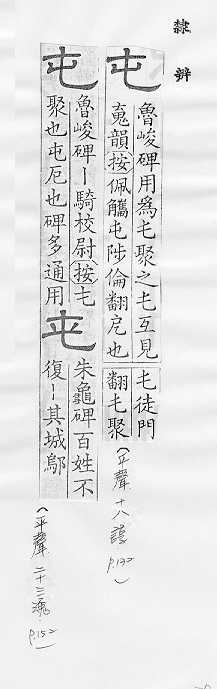 隸辨
屯
魯峻碑用為屯聚之屯互見
䰟韻按佩觿屯陟倫翻厄也
屯徒門
翻屯聚
(平聲 十八諄 p.132)
屯
魯峻碑ー騎校尉按屯
聚也屯厄也碑多通用
屯
朱龜碑百姓不
復ー其城鄔
(平聲 二十三魂 p.152)